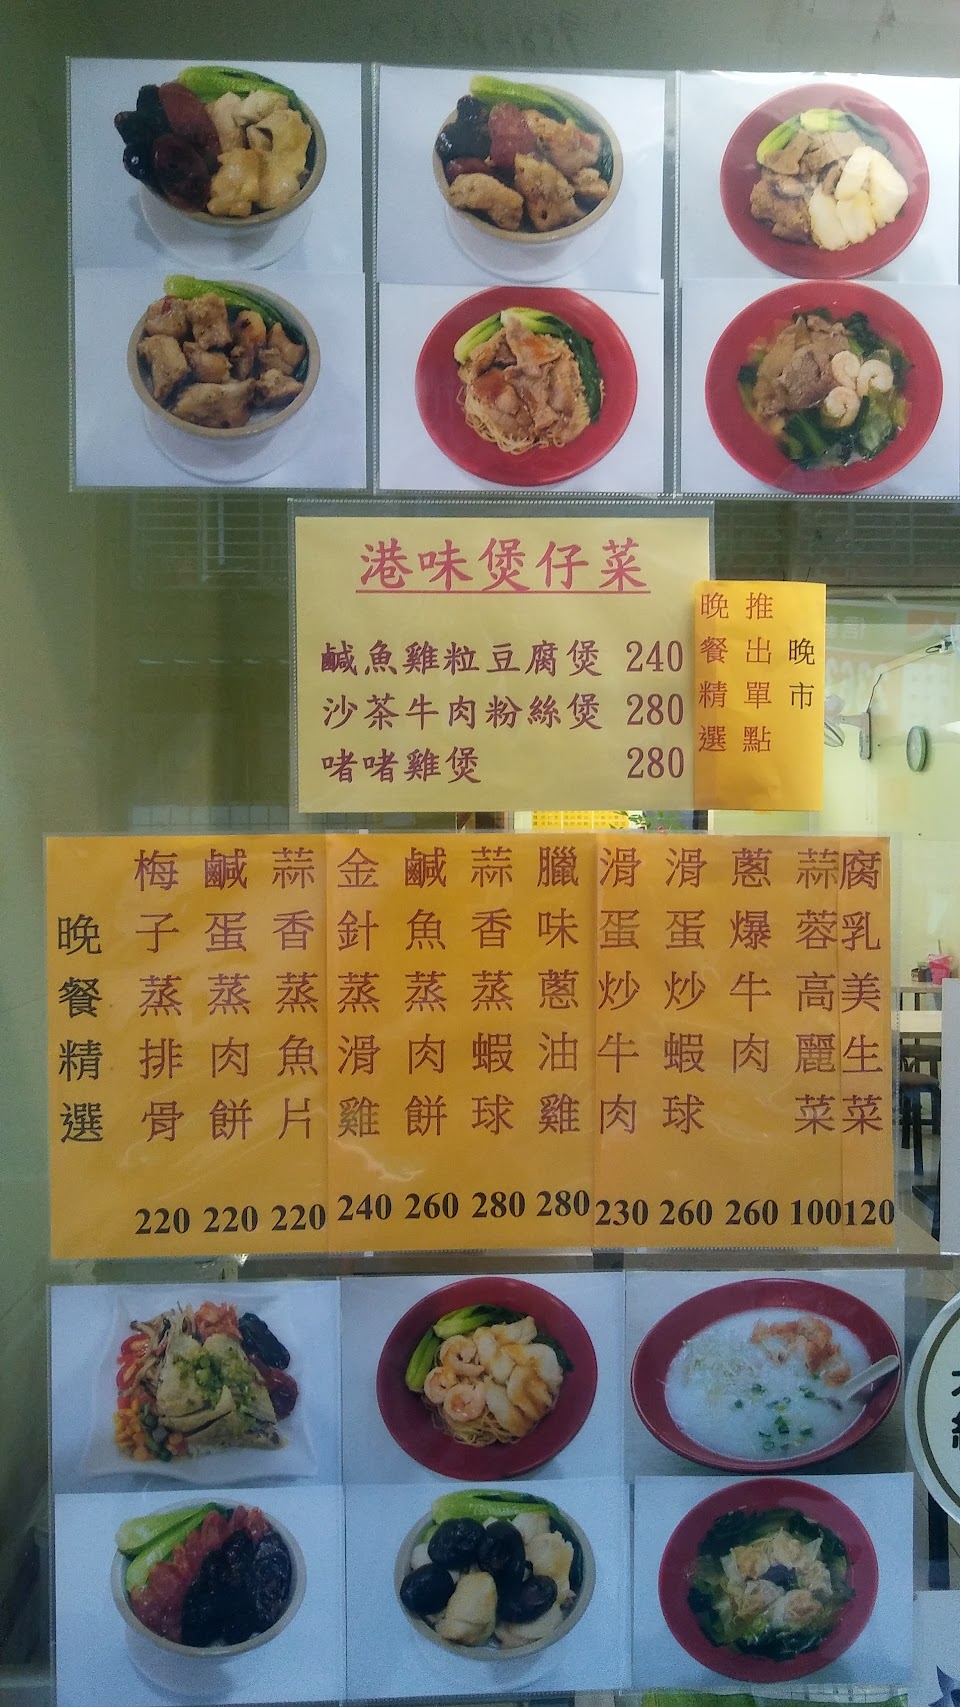 港味煲仔菜
鹹魚雞粒豆腐煲 240
沙茶牛肉粉絲煲 280
啫啫雞煲 280
晚市
推出單點
晚餐精選
晚餐精選
梅子蒸排骨 220
鹹蛋蒸肉餅 220
蒜香蒸魚片 220
金針蒸滑雞 240
鹹魚蒸肉餅 260
蒜香蒸蝦球 280
臘味蔥油雞 280
滑蛋炒牛肉 230
滑蛋炒蝦球 260
蔥爆牛肉 260
蒜蓉高麗菜 100
腐乳美生菜 120